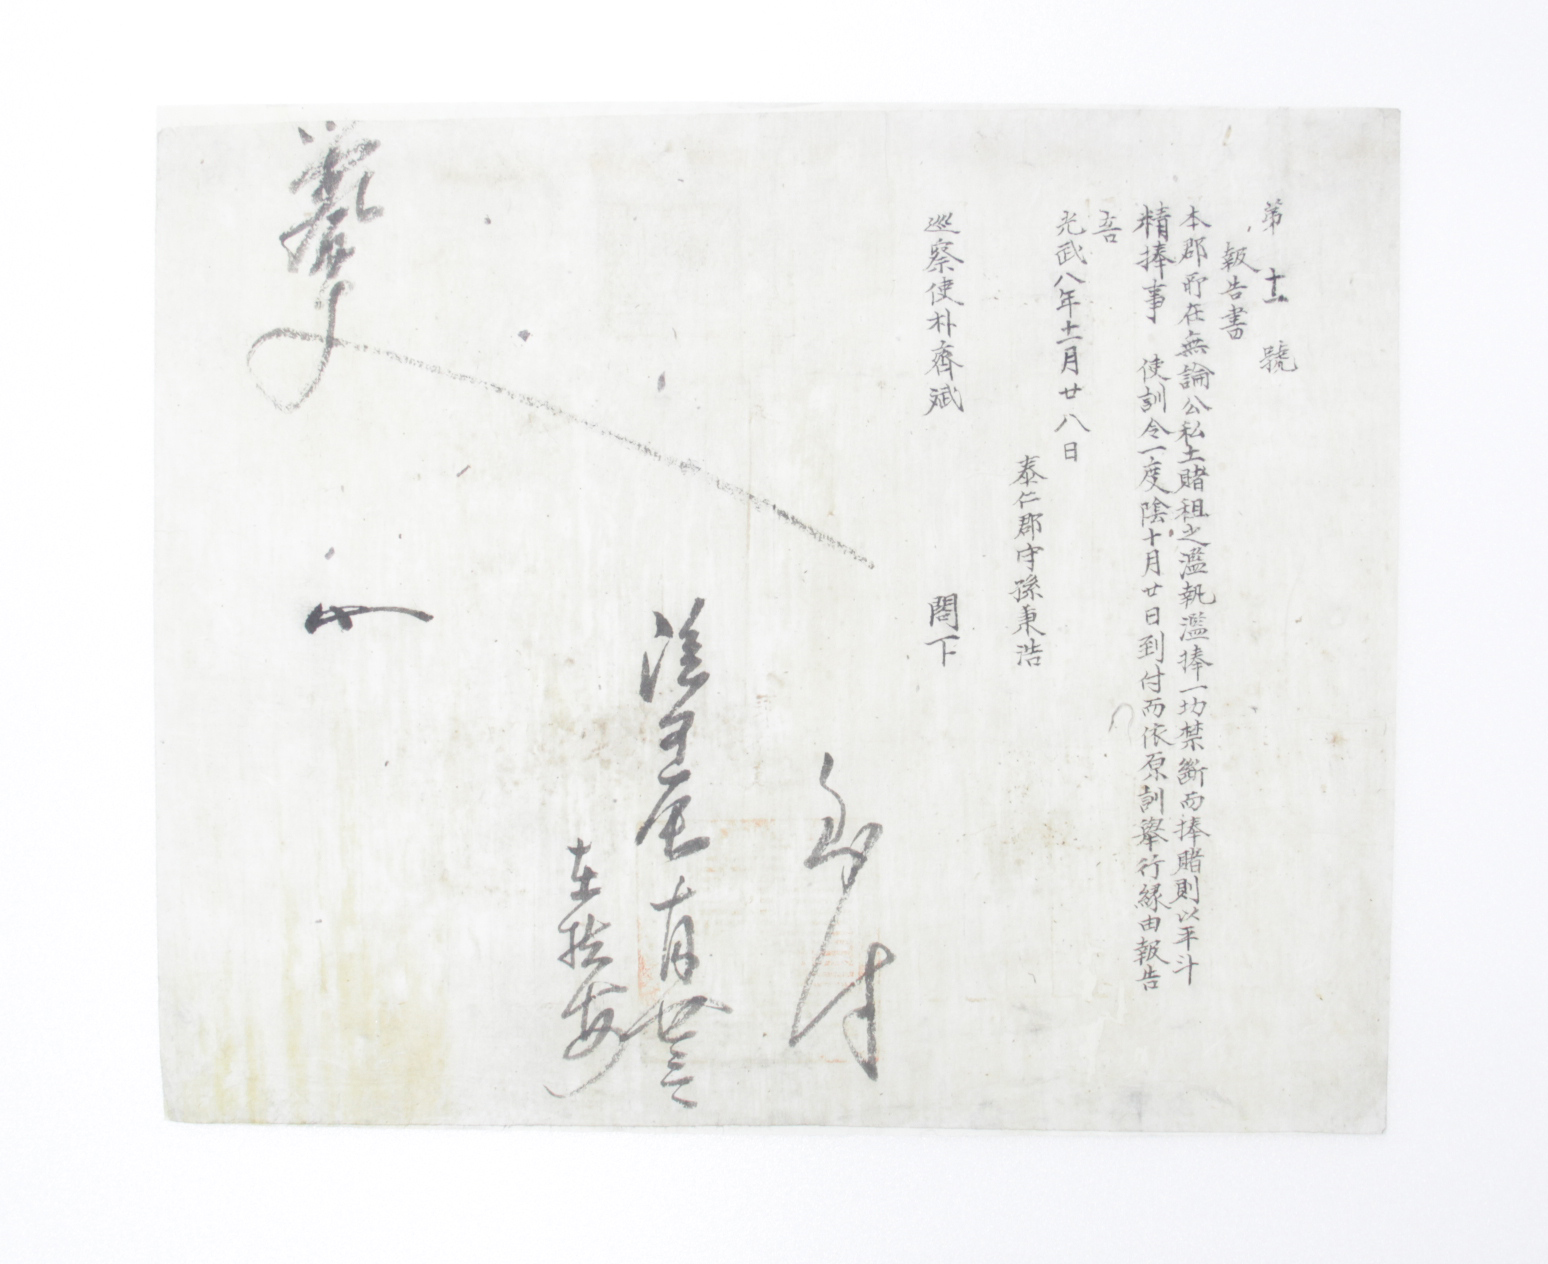 第十一號
報告書
本郡所在無論公私土賭租之濫執濫捧一切禁斷而捧賭則以平斗
精捧事 使訓令一度陰十月廿日到付而依原訓擧行緣由報告
光武八年十一月廿八日
泰仁郡守孫秉浩
巡察使朴齊斌 閤下
到付
陰甲辰十月廿三
在按安